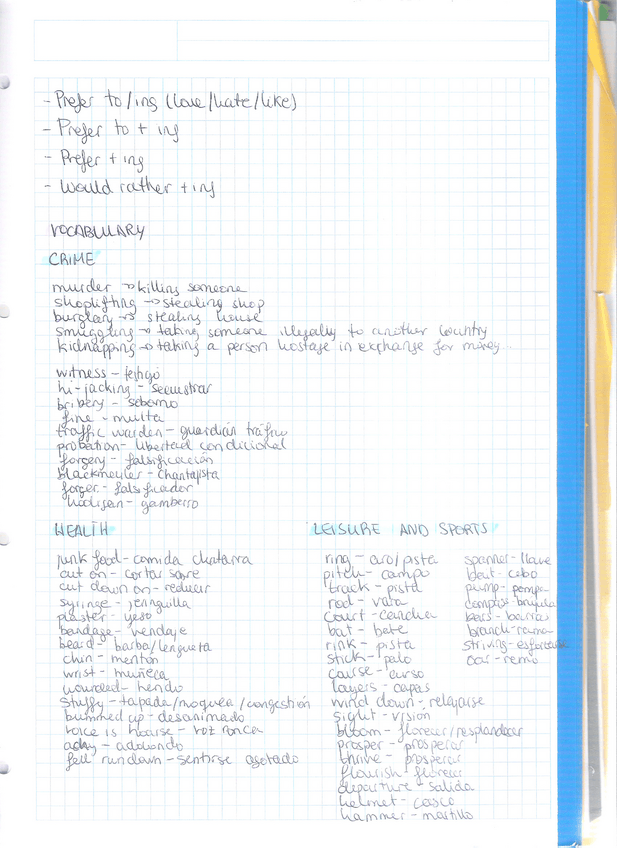 - Prefer to/ing (love/hate/like)
- Prefer to + ing
- Prefer + ing
- Would rather + ing
VOCABULARY
CRIME
murder → killing someone
shoplifting → stealing shop
burglary → stealing house
smuggling → taking someone illegally to another country
kidnapping → taking a person hostage in exchange for money
witness - testigo
hi-jacking - secuestrar
bribery - soborno
fine - multa
traffic warden - guardián tráfico
probation - libertad condicional
forgery - falsificación
blackmailer - chantajista
forger - falsificador
hooligan - gamberro
HEALTH
junk food - comida chatarra
cut on - cortar sobre
cut down on - reducir
syringe - jeringuilla
plaster - yeso
bandage - vendaje
beard - barba/lengueta
chin - mentón
wrist - muñeca
wounded - herido
stuffy - tapada/moquea/congestión
bummed up - desanimado
voice is hoarse - voz ronca
achy - adolorido
feel rundown - sentirse agotado
LEISURE AND SPORTS
ring - aro/pista
pitch - campo
track - pista
rod - vara
court - cancha
bat - bate
rink - pista
stick - palo
course - curso
layers - capas
wind down - relajarse
sight - visión
bloom - florecer/resplandecer
prosper - prosperar
thrive - prosperar
flourish - florecer
departure - salida
helmet - casco
hammer - martillo
spanner - llave
bait - cebo
pump - pompa
compass - brujula
bars - barras
branch - rama
striving - esforzarse
oar - remo